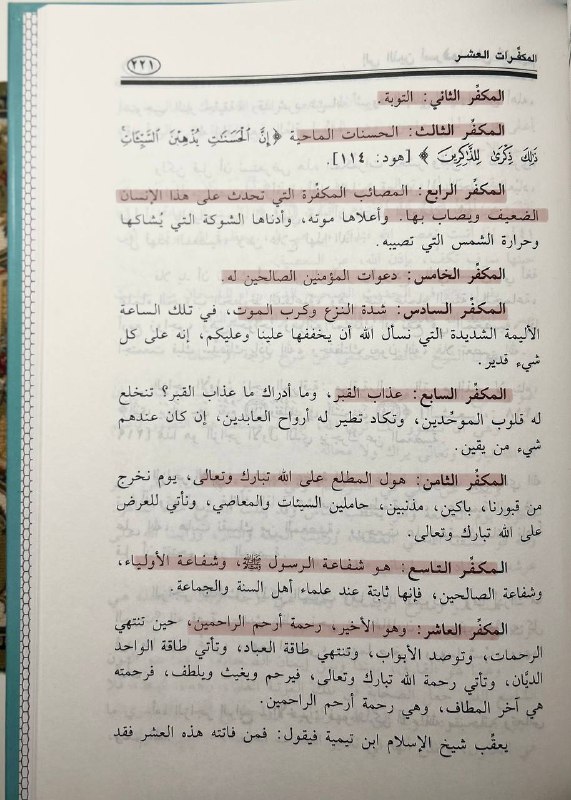 المكفّرات العشر
٢٢١
المكفّر الثاني: التوبة.
المكفّر الثالث: الحسنات الماحية ﴿إِنَّ الْحَسَنَاتِ يُذْهِبْنَ السَّيِّئَاتِ
ذَلِكَ ذِكْرَى لِلذَّاكِرِينَ﴾ [هود: ١١٤].
المكفّر الرابع: المصائب المكفّرة التي تحدث على هذا الإنسان
الضعيف ويصاب بها. وأعلاها موته، وأدناها الشوكة التي يُشاكها
وحرارة الشمس التي تصيبه.
المكفّر الخامس: دعوات المؤمنين الصالحين له.
المكفّر السادس: شدة النزع وكرب الموت، في تلك الساعة
الأليمة الشديدة التي نسأل الله أن يخففها علينا وعليكم، إنه على كل
شيء قدير.
المكفّر السابع: عذاب القبر، وما أدراك ما عذاب القبر؟ تنخلع
له قلوب الموحّدين، وتكاد تطير له أرواح العابدين، إن كان عندهم
شيء من يقين.
المكفّر الثامن: هول المطلع على الله تبارك وتعالى، يوم نخرج
من قبورنا، باكين، مذنبين، حاملين السيئات والمعاصي، ونأتي للعرض
على الله تبارك وتعالى.
المكفّر التاسع: هو شفاعة الرسول ﷺ، وشفاعة الأولياء،
وشفاعة الصالحين، فإنها ثابتة عند علماء أهل السنة والجماعة.
المكفّر العاشر: وهو الأخير، رحمة أرحم الراحمين، حين تنتهي
الرحمات، وتوصد الأبواب، وتنتهي طاقة العباد، وتأتي طاقة الواحد
الديّان، وتأتي رحمة الله تبارك وتعالى، فيرحم ويغيث ويلطف، فرحمته
هي آخر المطاف، وهي رحمة أرحم الراحمين.
يعقّب شيخ الإسلام ابن تيمية فيقول: فمن فاتته هذه العشر فقد